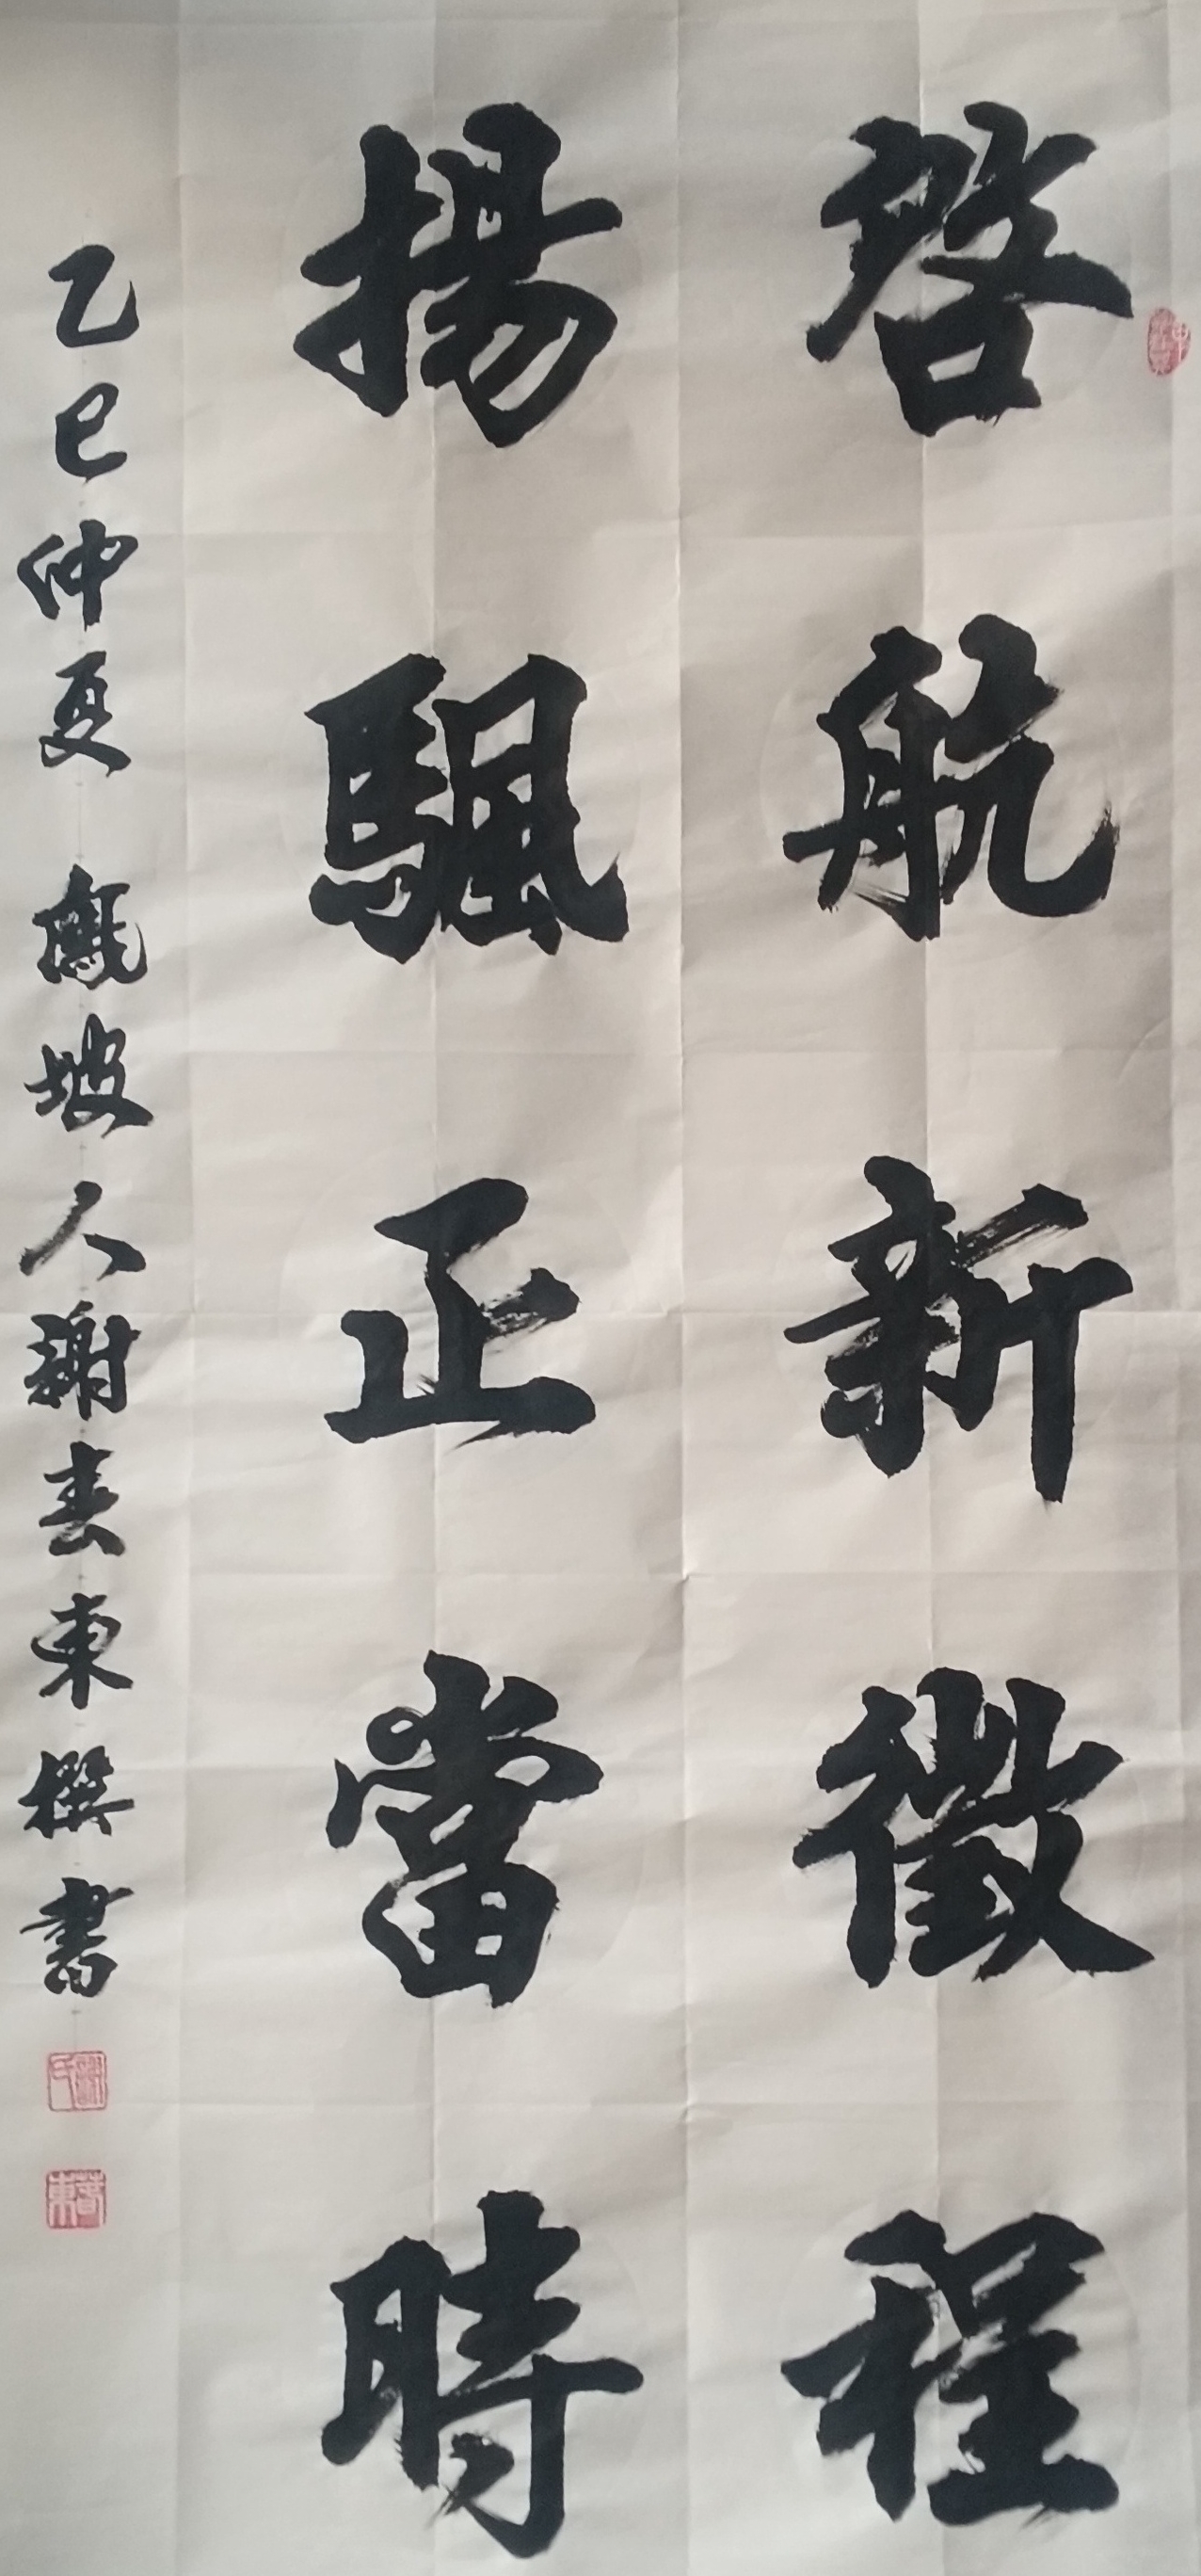 啓航新徵程
揚颿正當時
乙巳仲夏 鳳坡人謝春東撰書
謝氏
春東